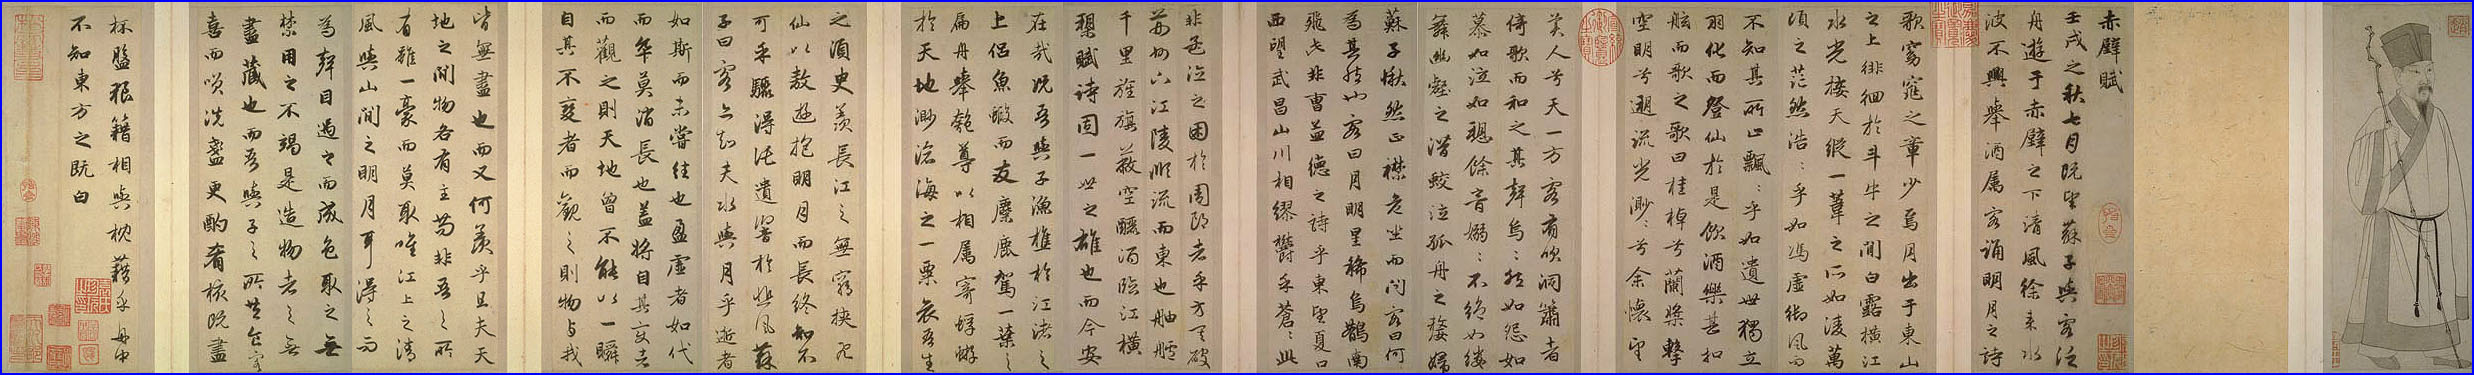 赤壁賦
壬戌之秋七月既望蘇子與客泛
舟遊于赤壁之下清風徐來水
波不興舉酒屬客誦明月之詩
歌窈窕之章少焉月出于東山
之上徘徊於斗牛之間白露橫江
水光接天縱一葦之所如凌萬
頃之茫然浩〻乎如馮虛御風而
不知其所止飄〻乎如遺世獨立
羽化而登仙於是飲酒樂甚扣
舷而歌之歌曰桂棹兮蘭槳擊
空明兮遡流光渺〻兮余懷望
美人兮天一方客有吹洞簫者
倚歌而和之其聲嗚〻然如怨如
慕如泣如訴餘音嫋〻不絕如縷
舞幽壑之潛蛟泣孤舟之嫠婦
蘇子愀然正襟危坐而問客曰何
為其然也客曰月明星稀烏鵲南
飛此非曹孟德之詩乎東望夏口
西望武昌山川相繆鬱乎蒼〻此
非孟德之困於周郎者乎方其破
荊州下江陵順流而東也舳艫
千里旌旗蔽空釃酒臨江橫
槊賦詩固一世之雄也而今安
在哉況吾與子漁樵於江渚之
上侶魚蝦而友麋鹿駕一葉之
扁舟舉匏尊以相屬寄蜉蝣
於天地渺滄海之一粟哀吾生
之須臾羨長江之無窮挾飛
仙以敖遊抱明月而長終知不
可乎驟得託遺響於悲風蘇
子曰客亦知夫水與月乎逝者
如斯而未嘗往也盈虛者如代
而卒莫消長也蓋將自其變者
而觀之則天地曾不能以一瞬
自其不變者而觀之則物與我
皆無盡也而又何羨乎且夫天
地之間物各有主苟非吾之所
有雖一毫而莫取唯江上之清
風與山間之明月耳得之而
為聲目遇之而成色取之無
禁用之不竭是造物者之無
盡藏也而吾與子之所共食客
喜而笑洗盞更酌肴核既盡
杯盤狼籍相與枕藉乎舟中
不知東方之既白